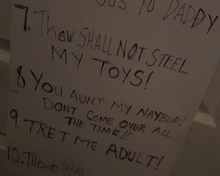 TO DADDY
7. Thow SHALL NOT STEEL
MY TOYS!
8 YOU AUNT MY NAYBUR!
DONT COME OVUR ALL
THE TIME!!
9. TRET ME ADULT!
10.